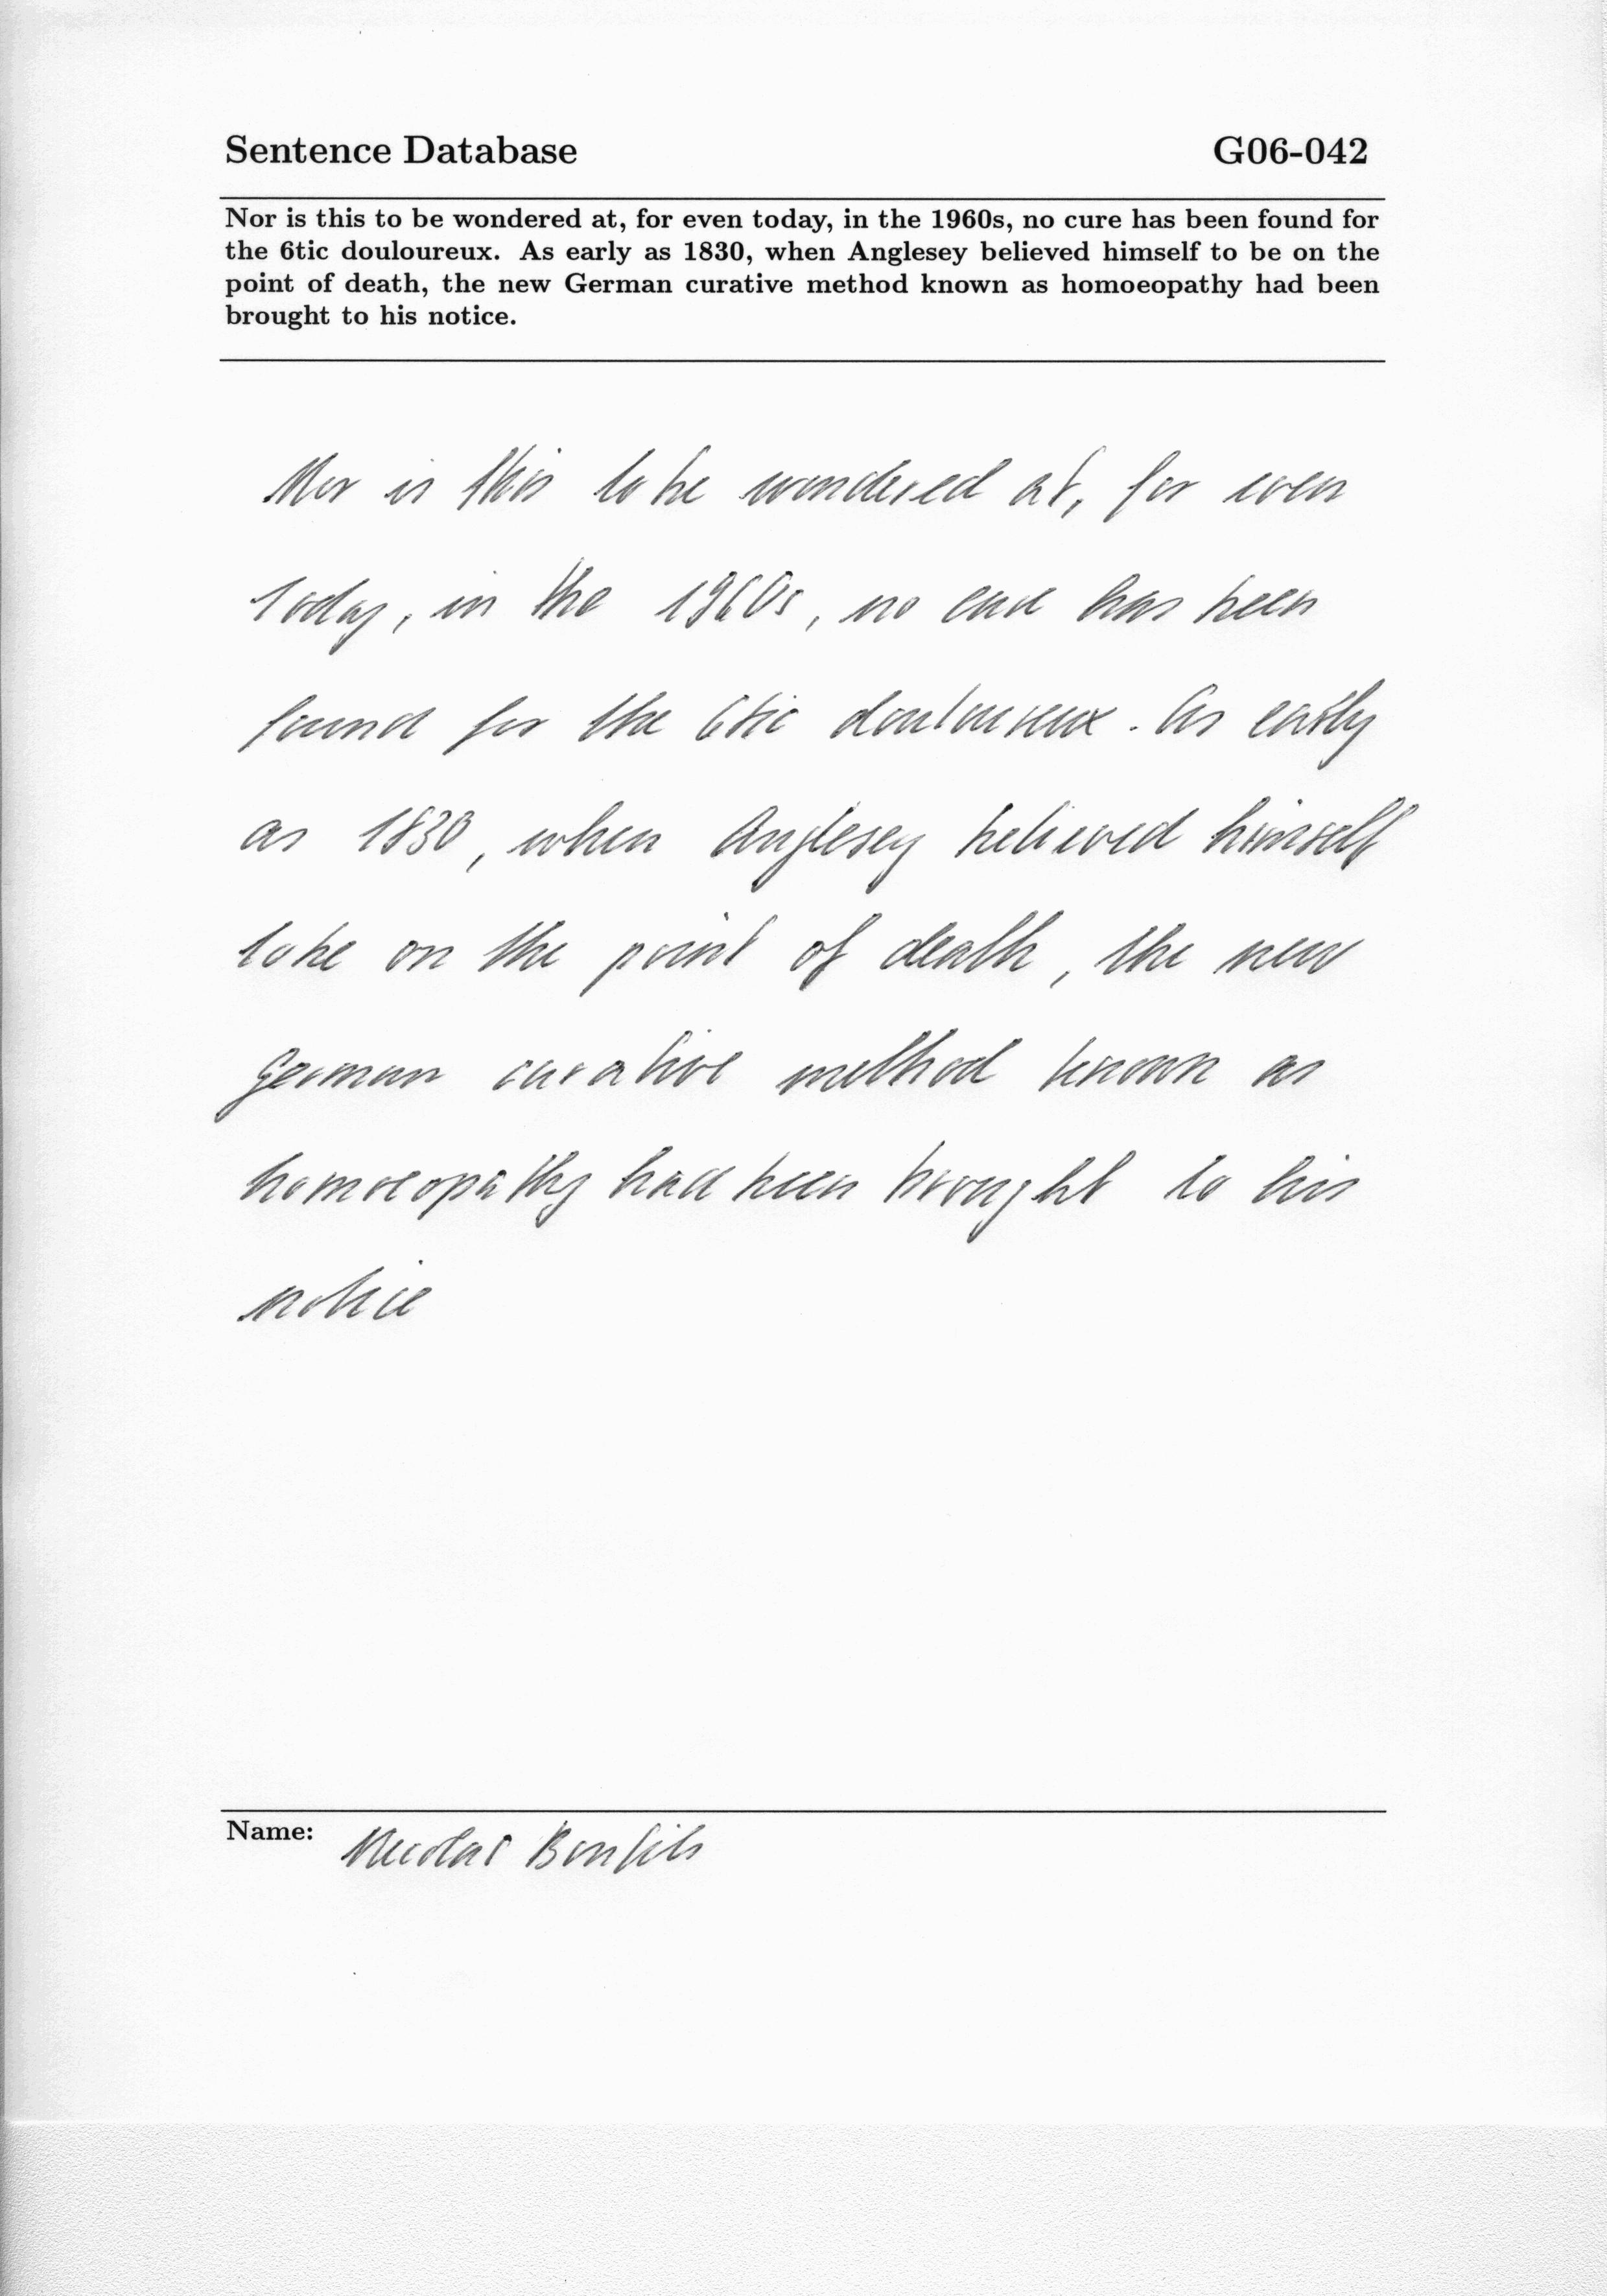 Sentence Database G06-042
Nor is this to be wondered at, for even today, in the 1960s, no cure has been found for
the 6tic douloureux. As early as 1830, when Anglesey believed himself to be on the
point of death, the new German curative method known as homoeopathy had been
brought to his notice.
Nor is this to be wondered at, for even
today, in the 1960s, no cure has been
found for the 6tic douloureux. As early
as 1830, when Anglesey believed himself
to be on the point of death, the new
German curative method known as
homoeopathy had been brought to his
notice
Name: Nicolas Bonfils